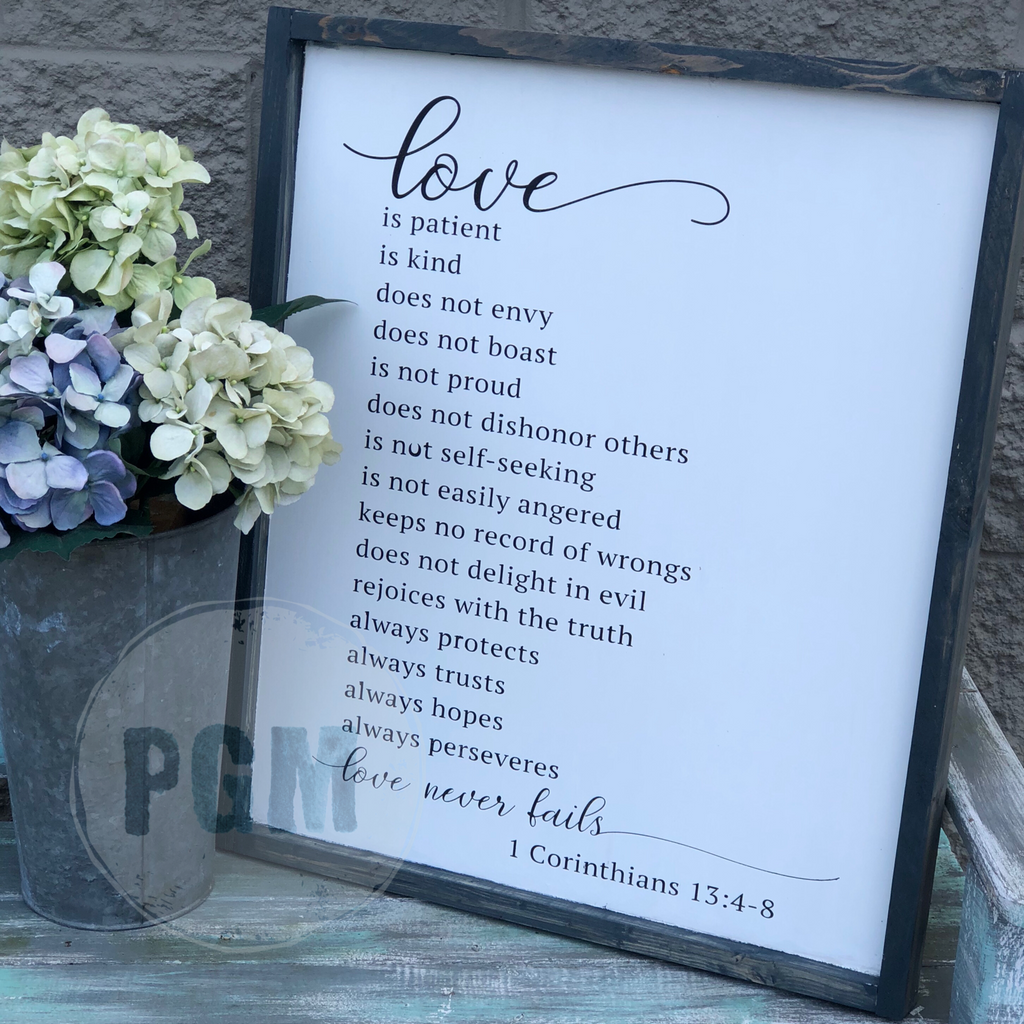 love
is patient
is kind
does not envy
does not boast
is not proud
does not dishonor others
is not self-seeking
is not easily angered
keeps no record of wrongs
does not delight in evil
rejoices with the truth
always protects
always trusts
always hopes
always perseveres
love never fails
1 Corinthians 13:4-8
PGM